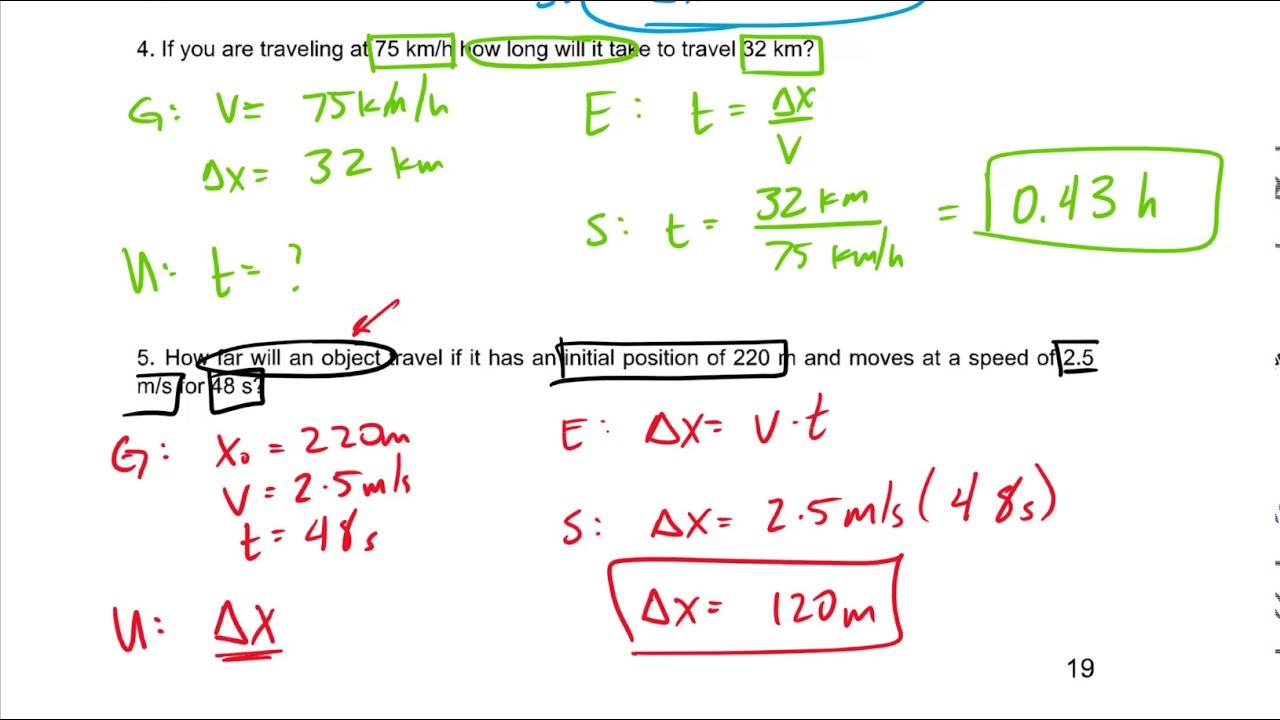 4. If you are traveling at 75 km/h how long will it take to travel 32 km?
G: V= 75 km/h
Δx= 32 km
U: t= ?
E: t = Δx/V
S: t = 32 km / 75 km/h = 0.43 h
5. How far will an object travel if it has an initial position of 220 m and moves at a speed of 2.5
m/s for 48 s?
G: x₀ = 220m
V = 2.5m/s
t = 48s
U: Δx
E: Δx= v·t
S: Δx= 2.5m/s(48s)
Δx= 120m
19